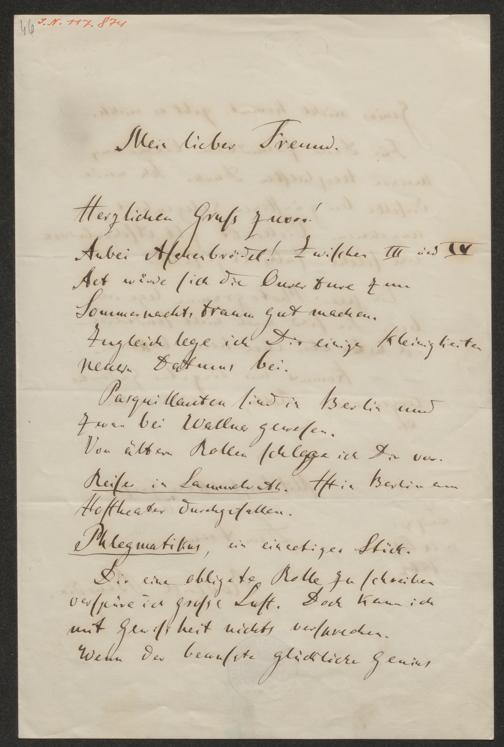 46 J.N. 117.874
Mein lieber Freund.
Herzlichen Gruß zuvor!
Anbei Aschenbrödel! Zwischen III und IV
Act würde sich die Ouverture zum
Sommernachtstraum gut machen.
Zugleich lege ich Dir einige Kleinigkeiten
neuern Datums bei.
Pasquillanten sind in Berlin und
zwar bei Wallner gewesen.
Von ältern Rollen schlage ich Dir vor.
Reise in Ist in Berlin am
Hoftheater durchgefallen.
Phlegmatikus, ein einactiges Stück.
Dir eine obligate Rolle zu schreiben
verspüre ich große Lust. Doch kann ich
mit Gewißheit nichts versprechen.
Wenn der bewußte glückliche Genius